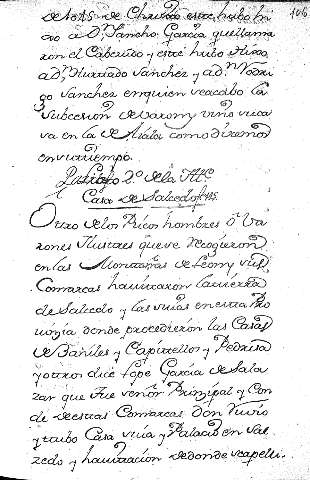 106
de 1085 de Christo este hubo hi
xo a Dn. Sancho Garcia que llama
ron el Cabezudo y este hubo hixo
a Dn. Hurtado Sanchez y a dn. Rodri
go Sanchez en quien se acabo la
subcesion de varon y vino recai
va en la de Aiala como diremos
en su tiempo.
2o de la
Casa de Salcedo
Otro de los Ricos hombres o Va
rones Ilustres que se recogieron
en las Montañas de Leon y sus
Comarcas havitaron la tierra
de Salcedo y las suias en esta Pro
vinzia donde procedieron las Casas
de Bañiles y Capitellos y Pedrisa
y otros dice Lope Garcia de Sala
zar que fue señor Prinzipal y Con
de de estas Comarcas don
y tubo Casa suia y Palacio en Sal
zedo y havitacion de donde se apelli.